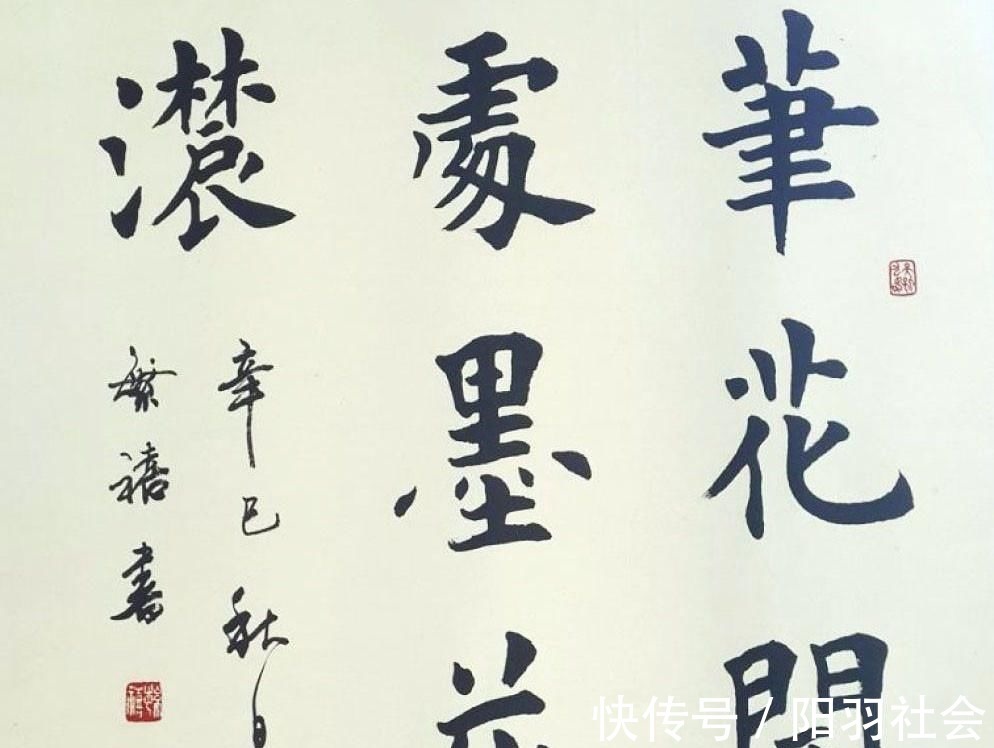 筆花開
處墨花
濃
辛巳秋日
繁禧書
快传号 / 阳羽社会